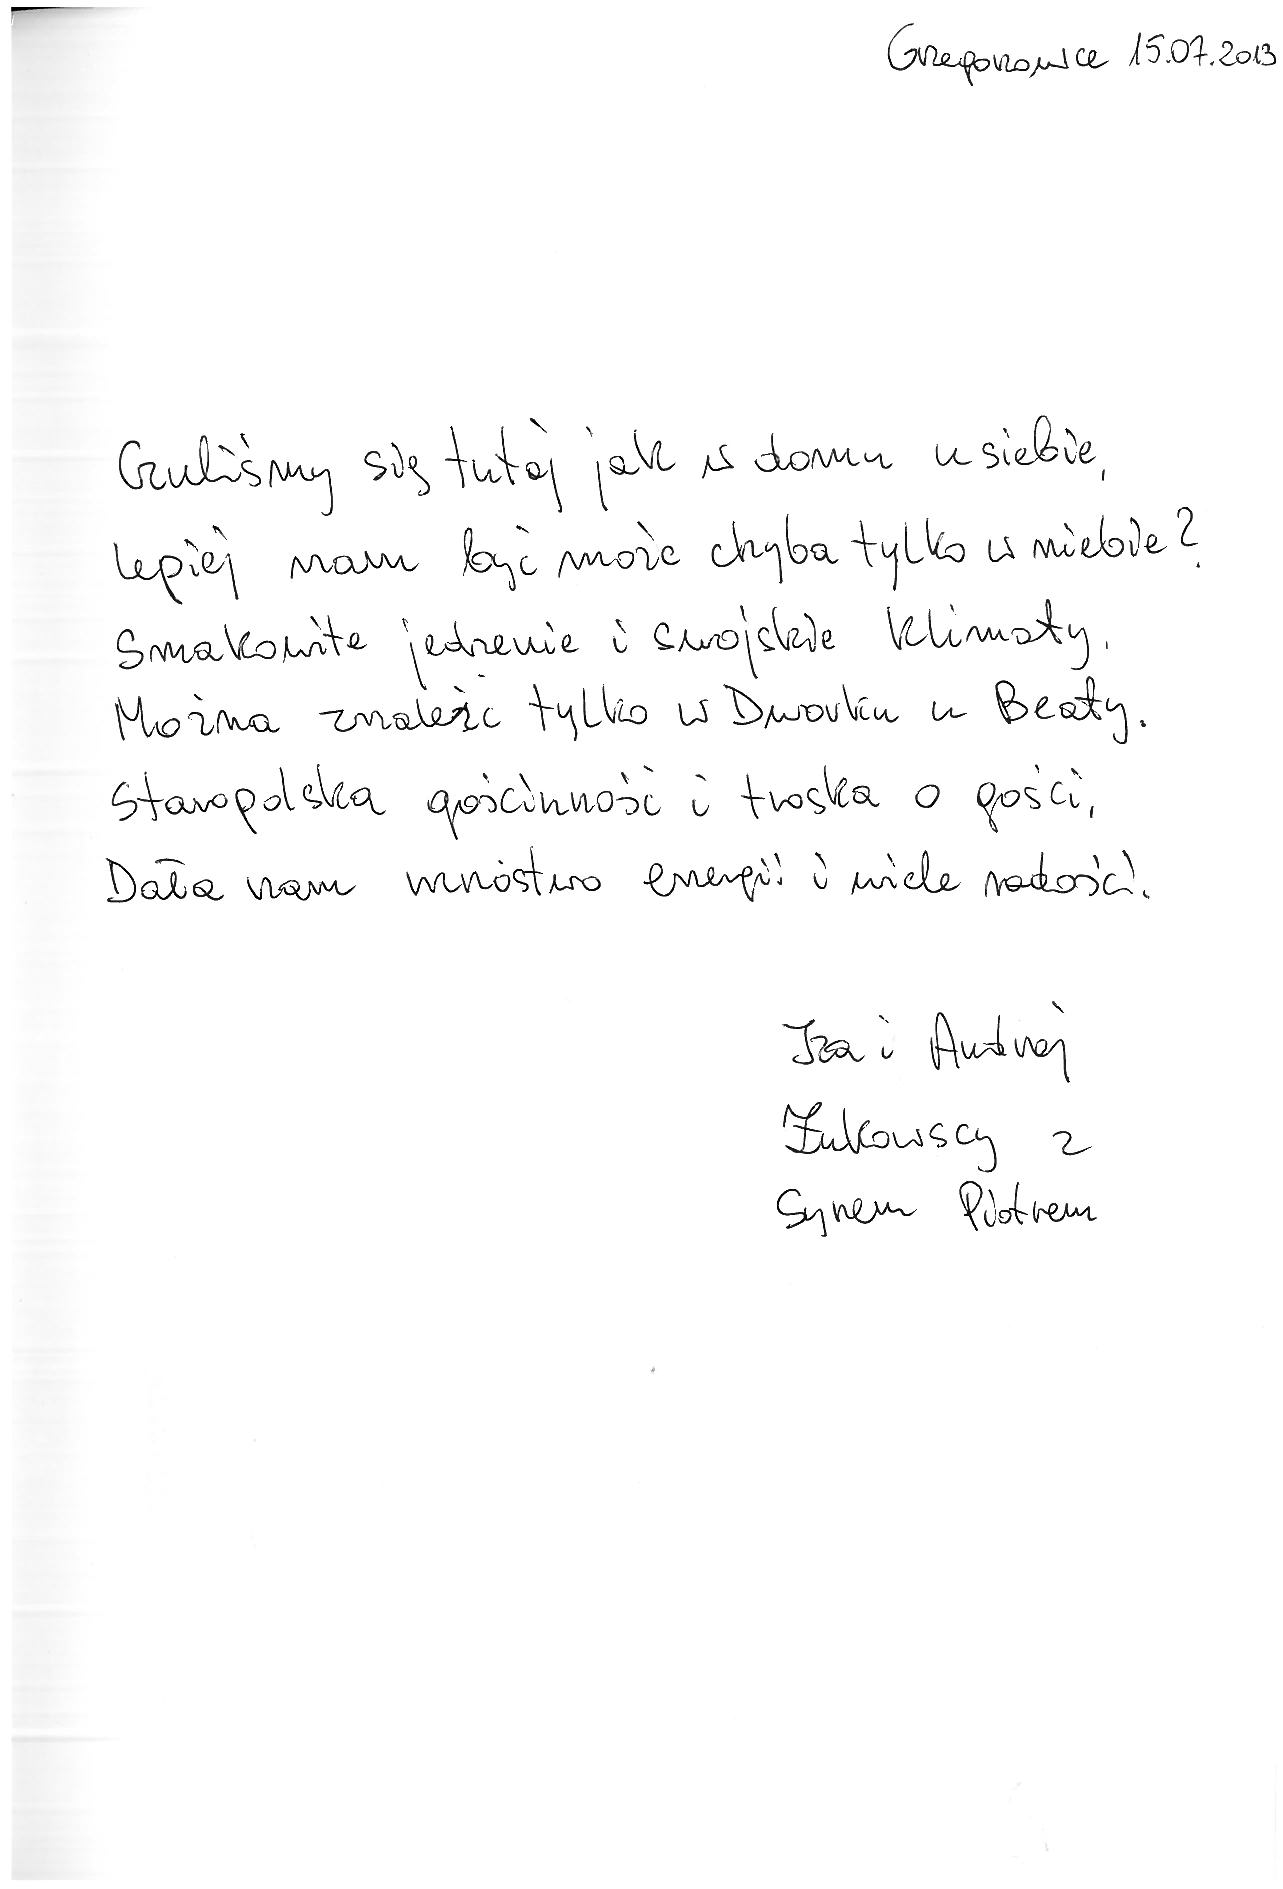 Grzegorzowice 15.07.2013
Czuliśmy się tutaj jak w domu u siebie,
lepiej nam być może chyba tylko w niebie?
Smakowite jedzenie i swojskie klimaty,
Można znaleźć tylko w Dworku u Beaty.
Staropolska gościnność i troska o gości,
Dała nam mnóstwo energii i wiele radości.
Iza i Andrzej
Żukowscy z
Synem Piotrem